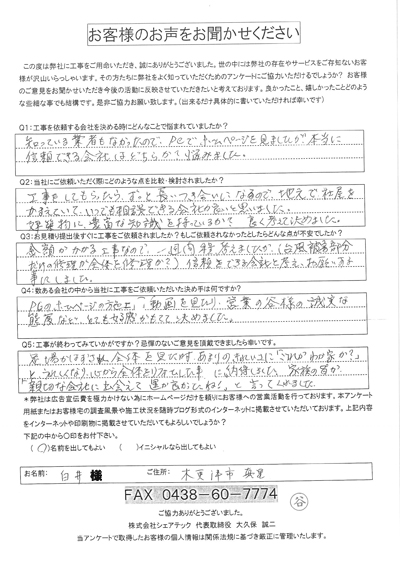 お客様のお声をお聞かせください
この度は弊社に工事をご用命いただき、誠にありがとうございました。世の中には弊社の存在やサービスをご存知ないお客
様が沢山いらっしゃいます。その方たちに弊社をよく知っていただくためのアンケートにご協力いただけるでしょうか? お客様
のご意見をお聞かせいただき今後の活動に反映させていただきたいと考えております。良かったこと、嬉しかったことどのよ
うな些細な事でも結構です。是非ご協力お願い致します。(出来るだけ具体的に書いていただければ幸いです)
Q1:工事を依頼する会社を決める時にどんなことで悩まれていましたか?
知っている業者もなかったので、PCでホームページを見ましたが本当に
信頼できる会社はどちらか?悩みました。
Q2:当社にご依頼いただく際にどのような点を比較・検討されましたか?
工事をしてもらったら、ずっと長いつき合いになるので、地元で社屋を
かまえていて、いつでも相談できる会社が良いと思いました。
建築的に豊富な知識を持っているか? 良く考えて決めました。
Q3:お見積り提出後すぐに工事をご依頼されましたか?もしご依頼されなかったとしたらどんな点が不安でしたか?
金額がかかる工事なので、一週間程考えましたが、(台風被害部分
だけの修理か全体を修理か?) 信頼をできる会社と考え、お願いする
事にしました。
Q4:数ある会社の中から当社にご依頼いただいた決め手は何ですか?
PCのホームページの
動画を見たり、営業の谷様の誠実な
態度など、とても好感がもてて決めました。
Q5:工事が終わってみていかがですか?忌憚のないご意見を頂戴できましたら幸いです。
足場がはずされ全体を見た時、あまりのきれいさに「これがわが家か?」
とうれしくなり、
納得しました。家族の皆が
「親切な会社に出会えて運が良かったね!」と言ってくれました。
*弊社は広告宣伝費を極力かけない為にホームページだけを頼りにお客様への営業活動を行っております。本アンケート
用紙またはお客様宅の調査風景や施工状況を随時ブログ形式のインターネットに掲載させていただいております。上記内容
をインターネットや印刷物に掲載させていただいてもよろしいでしょうか?
下記の中から〇印をお付け下さい。
(〇)名前を出してもよい ( )イニシャルなら出してもよい
お名前: 白井 様 ご住所: 木更津市
FAX 0438-60-7774
谷
ご協力ありがとうございました。
株式会社シェアテック 代表取締役 大久保 誠二
当アンケートで取得したお客様の個人情報は関係法規に基づき厳正に管理いたします。